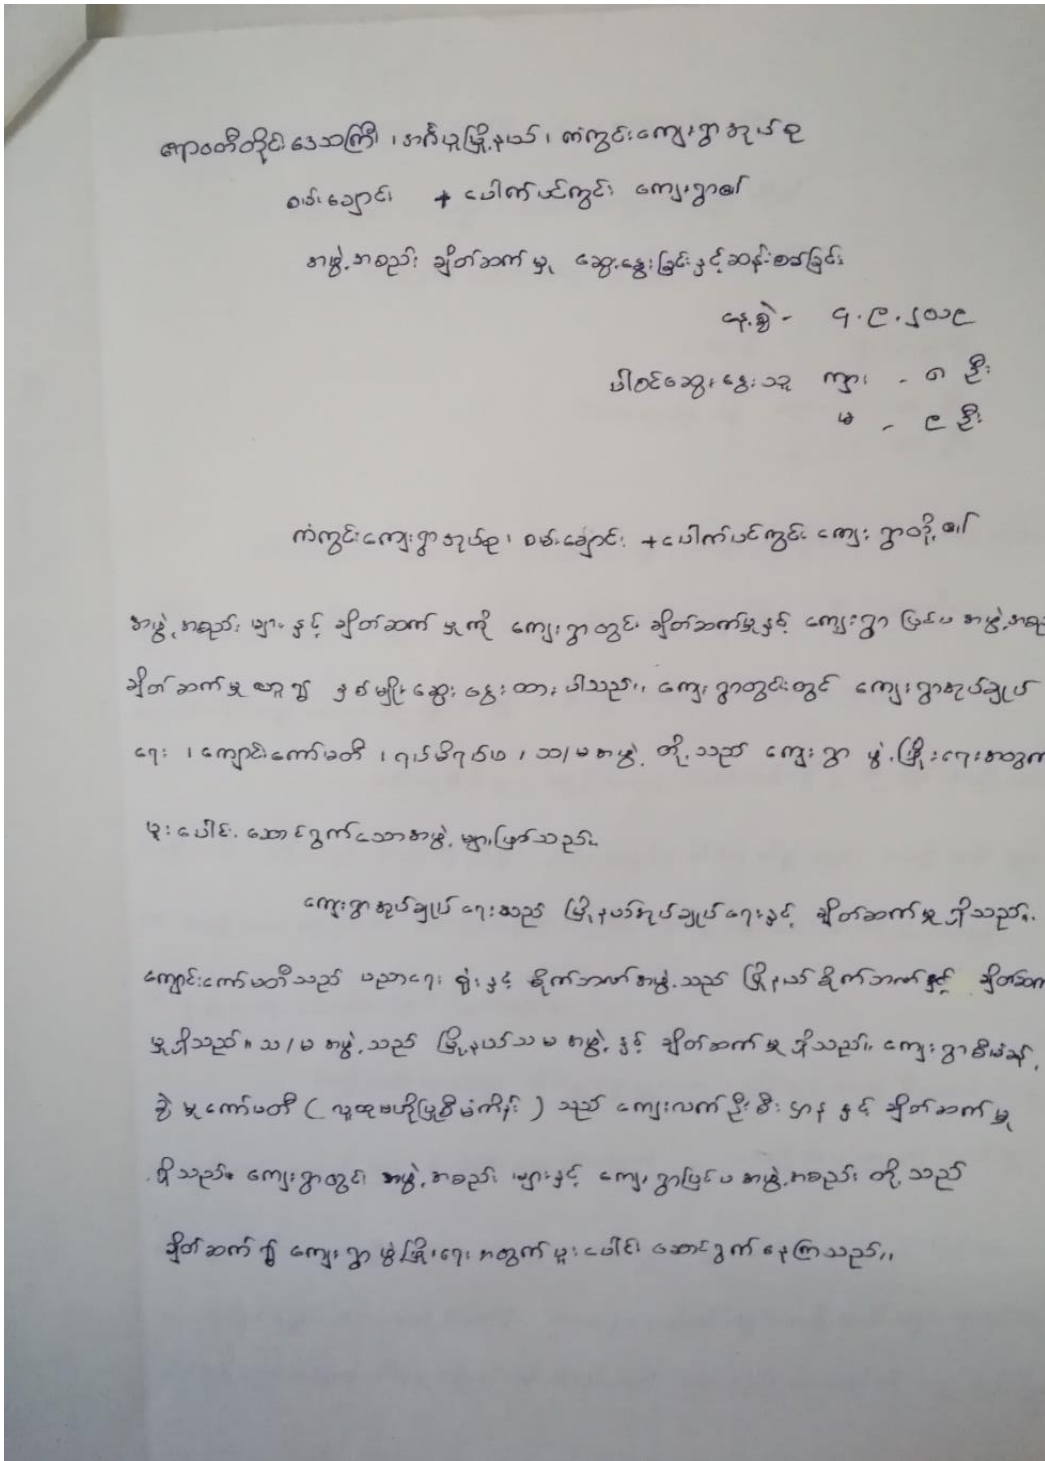 ဧရာဝတီတိုင်းဒေသကြီး ၊ အင်္ဂပူမြို့နယ် ၊ ကံကွင်းကျေးရွာအုပ်စု
စမ်းချောင်း + ပေါက်ပင်ကွင်း ကျေးရွာ၏
အဖွဲ့အစည်း ချိတ်ဆက်မှု ဆွေးနွေးခြင်းနှင့်ဆန်းစစ်ခြင်း
နေ့စွဲ - ၄.၉.၂၀၁၉
ပါဝင်ဆွေးနွေးသူ ကျား - ၈ ဦး
မ - ၉ ဦး
ကံကွင်းကျေးရွာအုပ်စု ၊ စမ်းချောင်း +ပေါက်ပင်ကွင်း ကျေးရွာတို့၏
အဖွဲ့အစည်းများနှင့် ချိတ်ဆက်မှုကို ကျေးရွာတွင်း ချိတ်ဆက်မှုနှင့် ကျေးရွာ ပြင်ပ အဖွဲ့အစည်း
ချိတ်ဆက်မှု ဟူ၍ နှစ်မျိုးဆွေးနွေးထားပါသည်။ ကျေးရွာတွင်းတွင် ကျေးရွာအုပ်ချုပ်
ရေး ၊ ကျောင်းကော်မတီ ၊ ရပ်မိရပ်ဖ ၊ သ/မအဖွဲ့ တို့သည် ကျေးရွာ ဖွံ့ဖြိုးရေးအတွက်
ပူးပေါင်းဆောင်ရွက်သောအဖွဲ့များဖြစ်သည်။
ကျေးရွာအုပ်ချုပ်ရေးသည် မြို့နယ်အုပ်ချုပ်ရေးနှင့် ချိတ်ဆက်မှုရှိသည်။
ကျောင်းကော်မတီသည် ပညာရေးရုံးနှင့် စိုက်ဘဏ်အဖွဲ့သည် မြို့နယ်စိုက်ဘဏ်နှင့် ချိတ်ဆက်
မှုရှိသည်။ သ/မ အဖွဲ့သည် မြို့နယ်သမအဖွဲ့နှင့် ချိတ်ဆက်မှုရှိသည်။ ကျေးရွာစီမံခန့်
ခွဲမှုကော်မတီ ( လူထုဗဟိုပြုစီမံကိန်း ) သည် ကျေးလက်ဦးစီးဌာနနှင့် ချိတ်ဆက်မှု
ရှိသည်။ ကျေးရွာတွင်း အဖွဲ့အစည်းများနှင့် ကျေးရွာပြင်ပအဖွဲ့အစည်းတို့သည်
ချိတ်ဆက်၍ ကျေးရွာဖွံ့ဖြိုးရေးအတွက်ပူးပေါင်းဆောင်ရွက်နေကြသည်။